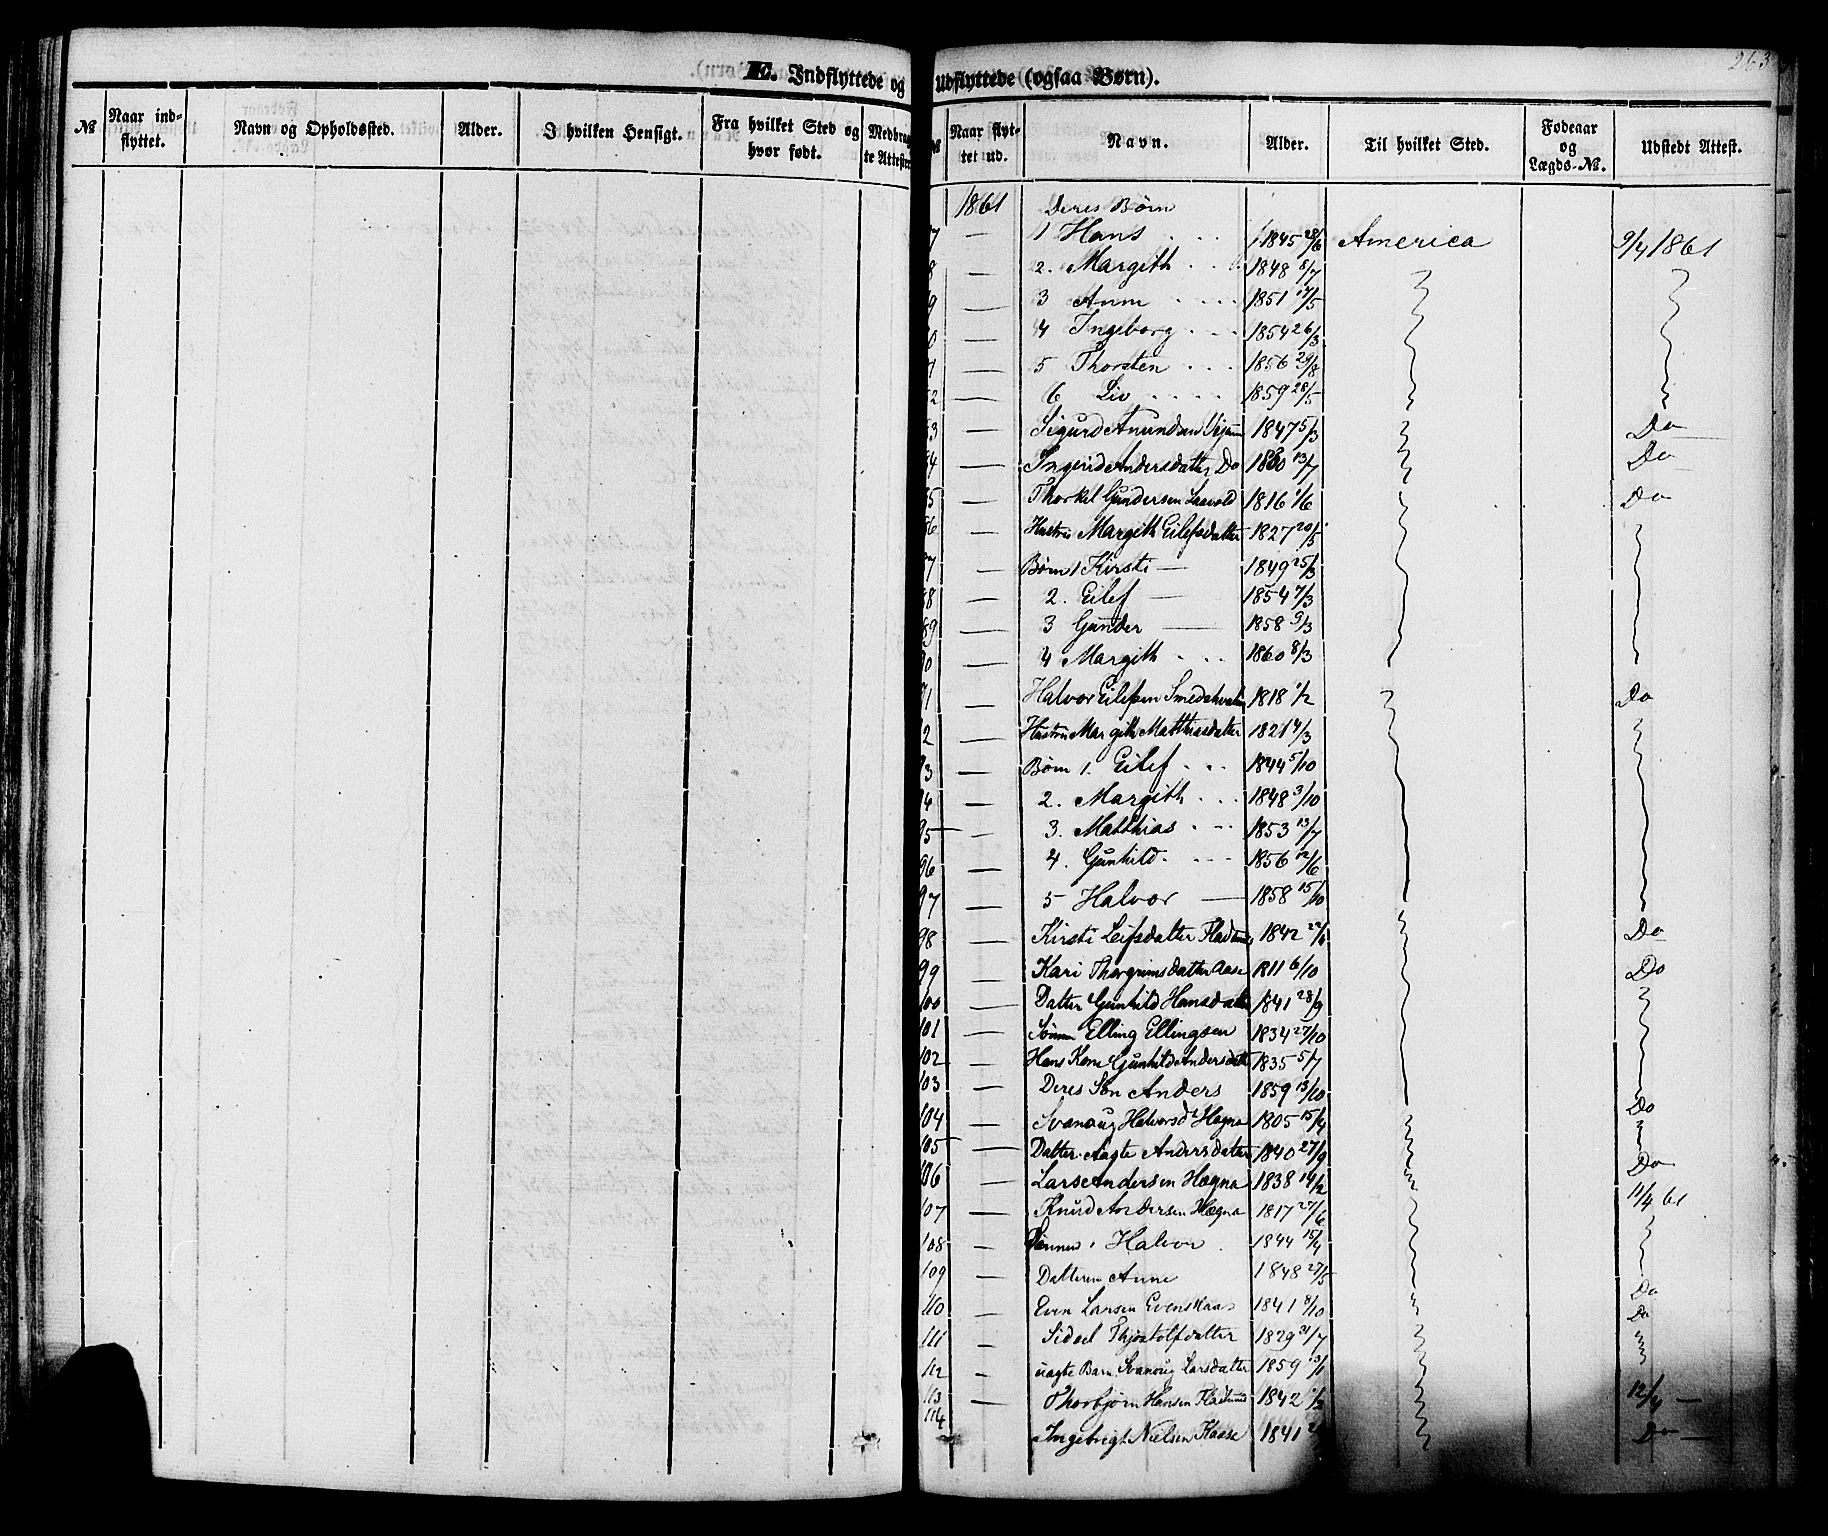 263
E. Indflyttede og udflyttede (ogsaa Børn).
№ Naar ind-flyttet. Navn og Opholdssted. Alder. I hvilken Hensigt. Fra hvilket Sted og hvor født. Medbragte Attester
Naar flyttet ud. Navn. Alder. Til hvilket Sted. Fødeaar og Lægds-№. Udstedt Attest.
1861 Deres Børn
7 — 1 Hans 1845 28/6 America 9/4 1861
8 — 2. Margith 1848 8/7
9 — 3 Anne 1851 17/5
0 — 4 Ingeborg 1854 26/3
1 — 5 Thorsten 1856 29/8
2 — 6 Liv 1859 28/5
3 — Sigurd Anundsen 1847 5/3 Do
4 — Ingerid Andersdatter Do 13/7 Do
5 — Thorkel Gundersen 1816 1/6 Do
6 — Hustru Margith Eilefsdatter 1827 20/5
7 — Børn 1 Kirsti — 1849 25/3
8 — 2. Eilef — 1854 7/3
89 — 3 Gunder — 1858 9/3
0 — 4 Margith 1860 8/3
1 — Halvor Eilefsen 1818 1/2 Do
2 — Hustru Margith Matthiasdatter 1821 4/3
3 — Børn 1. Eilef 1844 5/10
4 — 2. Margith 1848 3/10
95 — 3. Matthias 1853 13/7
96 — 4. Gunhild 1856 12/6
97 — 5 Halvor — 1858 15/10
98 — Kirsti Leifsdatter 1842 Do
99 — Kari Thorgrimsdatter Aase 1811 6/10 Do
100 — Datter Gunhild Hansdatter 1841 28/9
101 — Sønnen Elling Ellingsen 1834 27/10
102 — Hans Kone Gunhild Andersdatter 1835 5/7
103 — Deres Søn Anders 1859 13/10
104 — Svanaug Halvorsd Hægna 1805 15/4 Do
105 — Datter Aagte Andersdatter 1840 27/9
106 — Lars Andersen Hægna 1838 14/2 Do
107 — Knud Andersen Hægna 1817 27/6 11/4 61
108 — Sønnen 1 Halvor 1844 15/4
109 — Datteren Anne 1848 27/5
110 — Even Larsen 1841 8/10 Do
111 — Sidsel Thjostolfdatter 1829 21/7 Do
112 — uægte Barn Svanoug Larsdatter 1859 13/1
113 — Thorbjørn Hansen Fladlund 1842 1/2 12/4 —
114 Ingebrigt Nielsen Kaase 1841 Do —